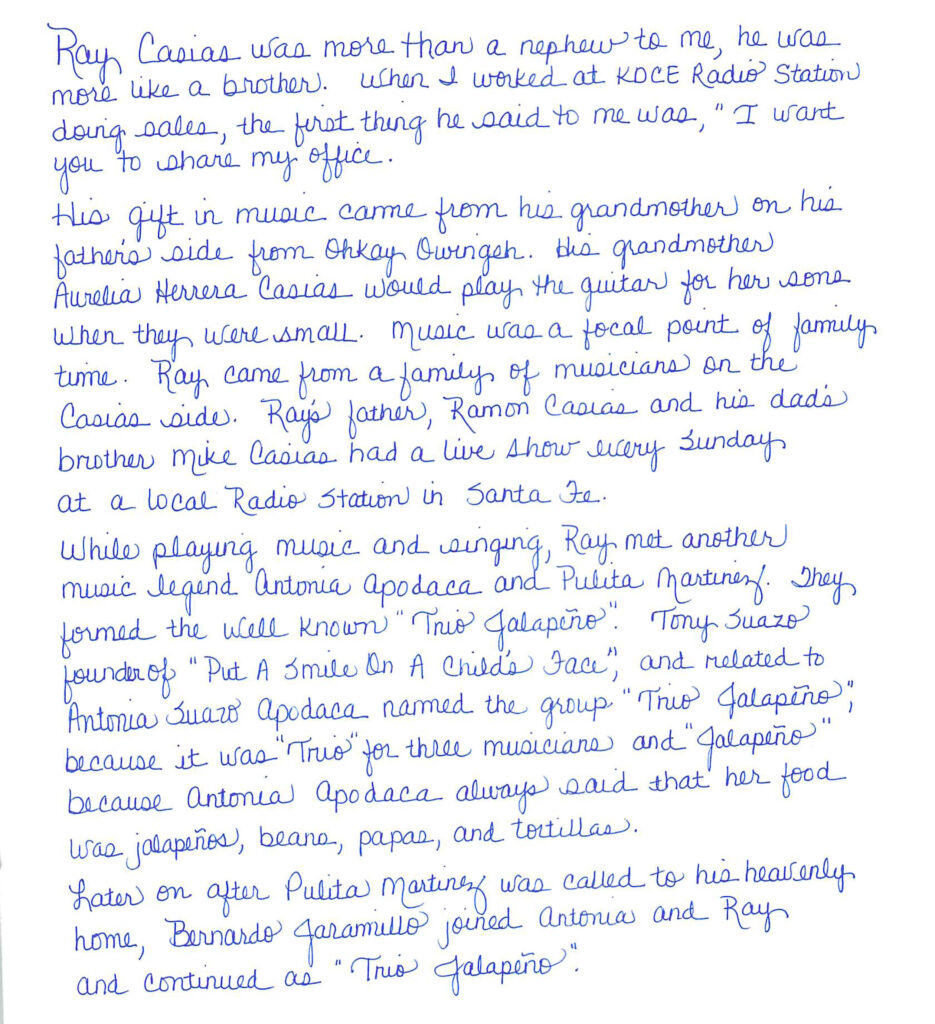 Ray Casias was more than a nephew to me, he was
more like a brother. When I worked at KDCE Radio Station
doing sales, the first thing he said to me was, "I want
you to share my office.
His gift in music came from his grandmother on his
father's side from Ohkay Owingeh. His grandmother
Aurelia Herrera Casias would play the guitar for her sons
when they were small. Music was a focal point of family
time. Ray came from a family of musicians on the
Casias side. Ray's father, Ramon Casias and his dad's
brother Mike Casias had a live show every Sunday
at a local Radio Station in Santa Fe.
While playing music and singing, Ray met another
music legend Antonia Apodaca and Pulita Martinez. They
formed the well known "Trio Jalapeño". Tony Suazo
founder of "Put A Smile On A Child's Face", and related to
Antonia Suazo Apodaca named the group "Trio Jalapeño",
because it was "Trio" for three musicians and "Jalapeño"
because Antonia Apodaca always said that her food
was jalapeños, beans, papas, and tortillas.
Later on after Pulita Martinez was called to his heavenly
home, Bernardo Jaramillo joined Antonia and Ray
and continued as "Trio Jalapeño".